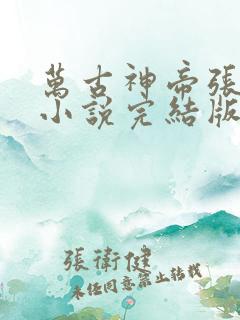 萬古神帝張
小說完結版
張衛健
未經同意禁止轉載